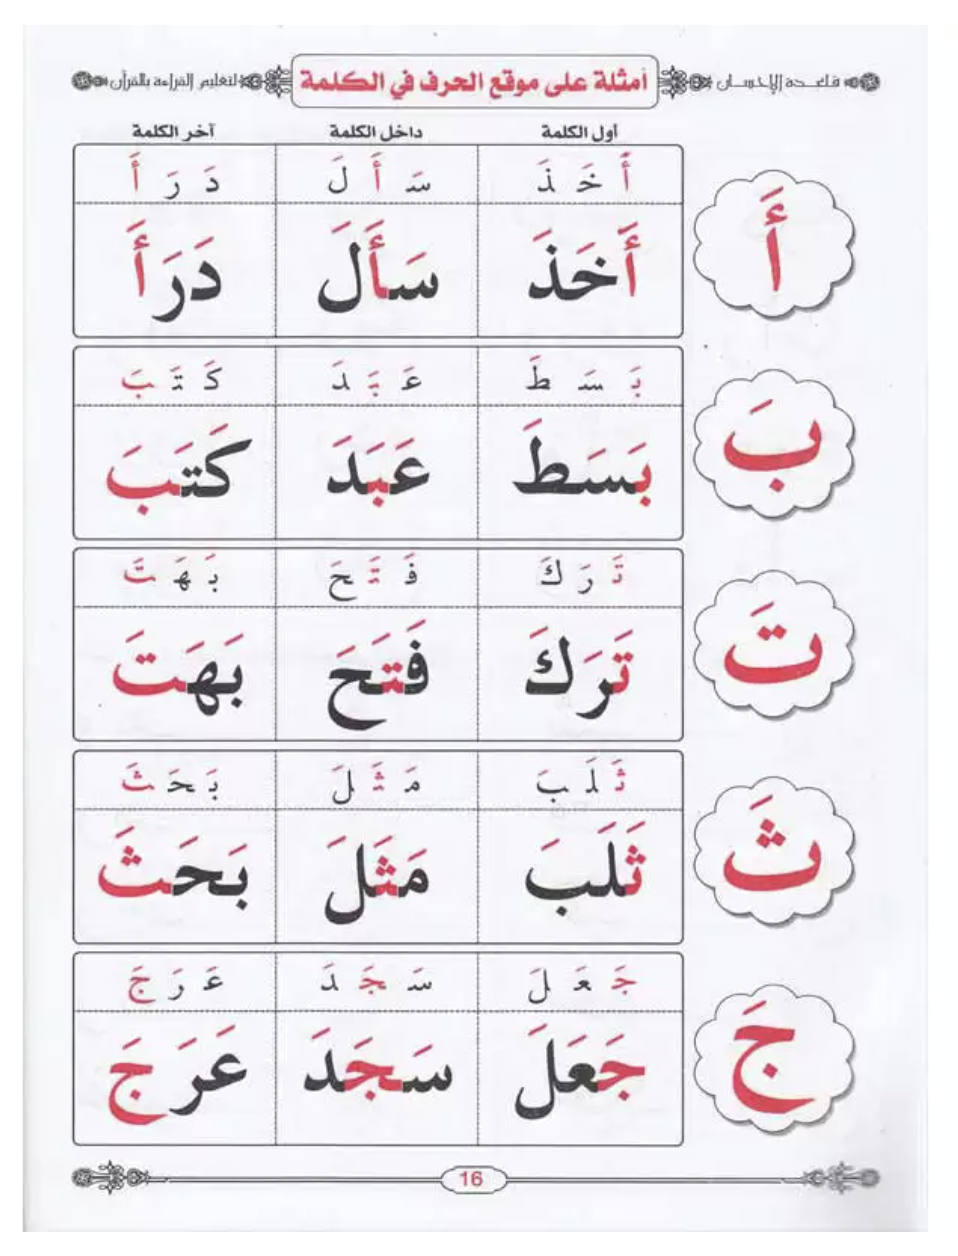 قاعدة الإحسان
أمثلة على موقع الحرف في الكلمة
لتعليم القراءة بالقرآن
أول الكلمة داخل الكلمة آخر الكلمة
أَ خَ ذَ سَ أَ لَ دَ رَ أَ
أَ
أَخَذَ سَأَلَ دَرَأَ
بَ سَ طَ عَ بَ دَ كَ تَ بَ
بَ
بَسَطَ عَبَدَ كَتَبَ
تَ رَ كَ فَ تَ حَ بَ هَ تَ
تَ
تَرَكَ فَتَحَ بَهَتَ
ثَ لَ بَ مَ ثَ لَ بَ حَ ثَ
ثَ
ثَلَبَ مَثَلَ بَحَثَ
جَ عَ لَ سَ جَ دَ عَ رَ جَ
جَ
جَعَلَ سَجَدَ عَرَجَ
16